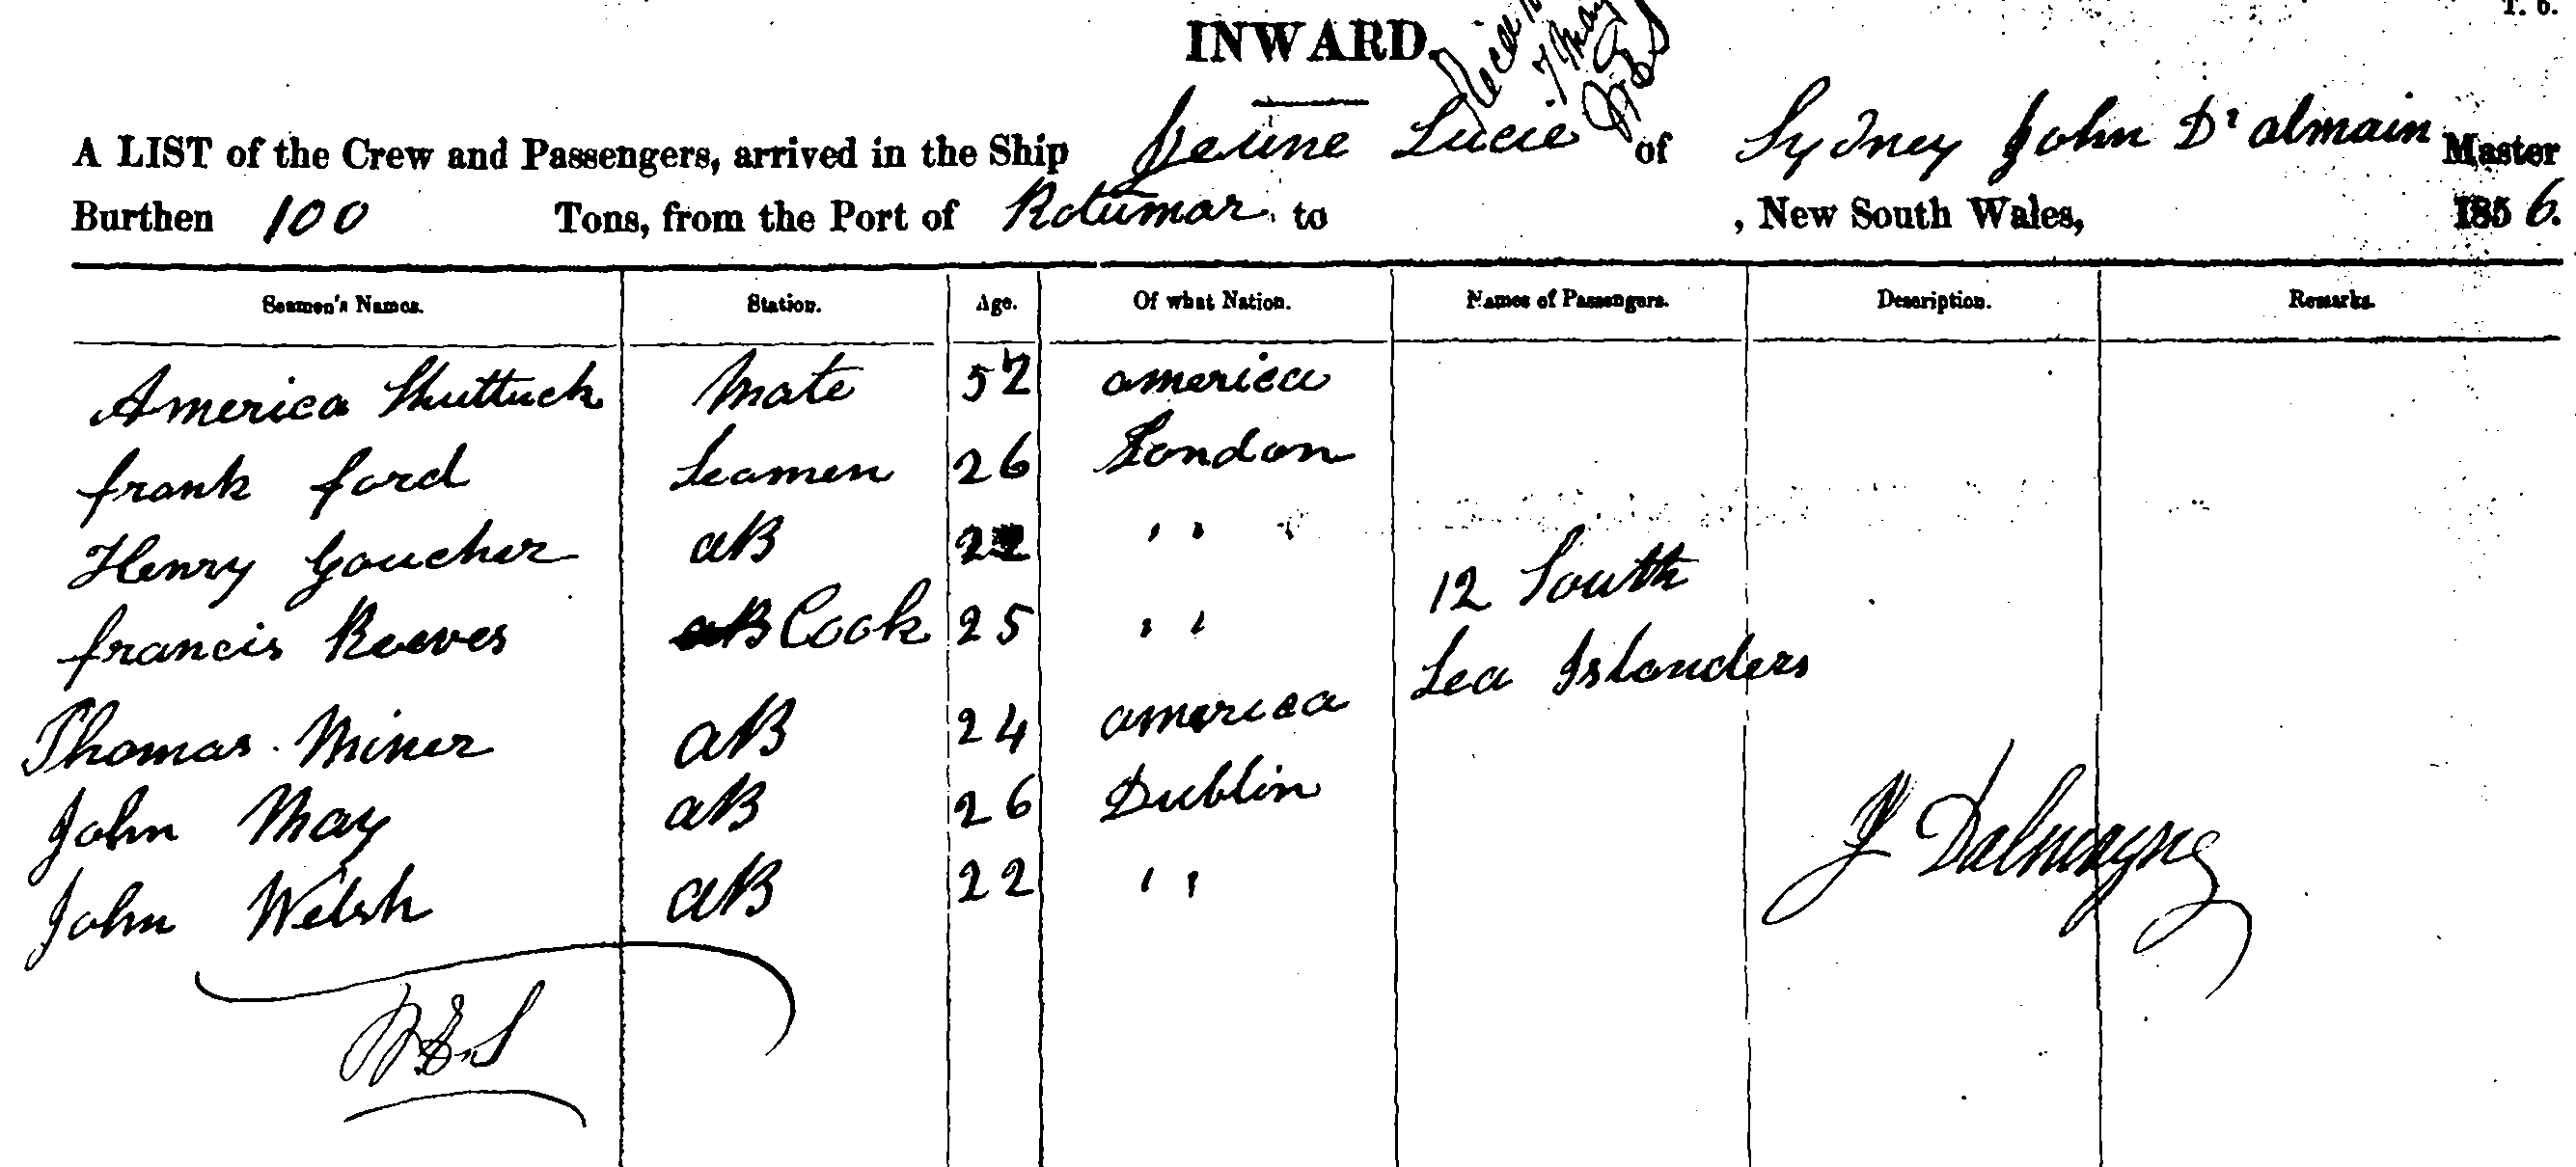 T. 6.
INWARD.
7 May
A LIST of the Crew and Passengers, arrived in the Ship Jeune Lucie of Sydney John D'almain Master
Burthen 100 Tons, from the Port of Rotumar to , New South Wales, 1856.
Seamen's Names. Station. Age. Of what Nation. Names of Passengers. Description. Remarks.
America Shuttuck Mate 52 america
frank ford Seamen 26 London
Henry Goucher aB 22 " "
francis Reeves aB Cook 25 " " 12 South
Sea Islanders
Thomas Miner aB 24 america
John May aB 26 Dublin
John Welsh aB 22 " "
J Dalmayne